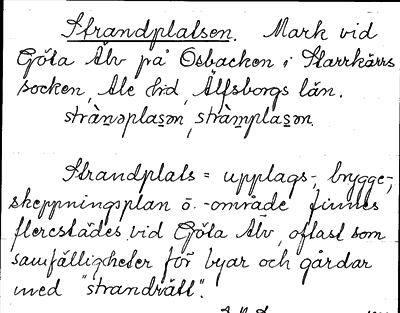 Strandplatsen. Mark vid
Göta Älv på Osbacken i Starrkärrs
socken, Ale hd, Älfsborgs län.
strànəplasən, stràmplasən.
Strandplats = upplags-, brygge-,
skeppningsplan o. -område finnes
flerestädes vid Göta Älv, oftast som
samfälligheter för byar och gårdar
med "strandrätt".